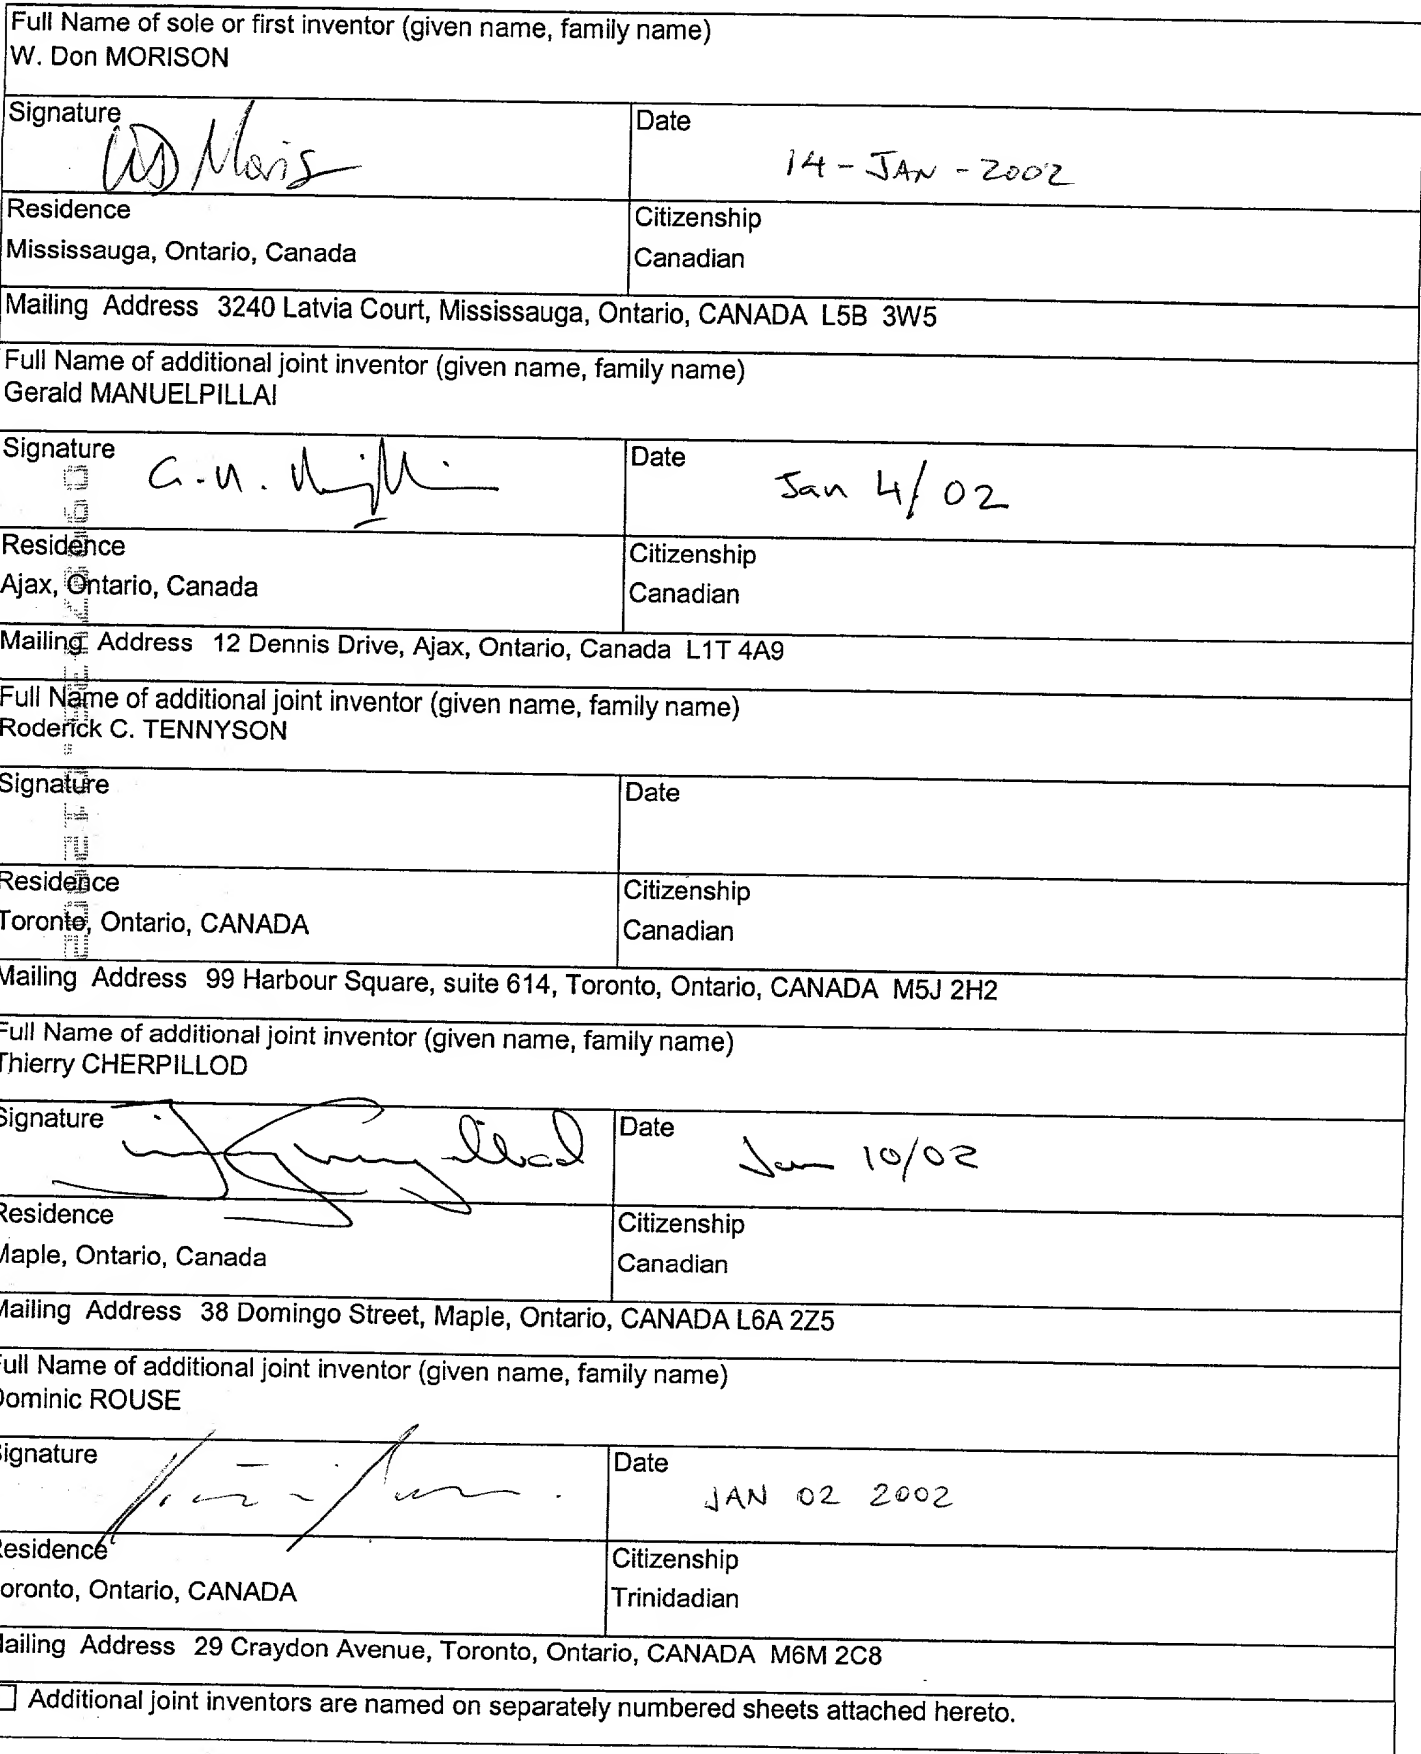 Full Name of sole or first inventor (given name, family name)
W. Don MORISON
Signature
Date
WD Moris
14-JAN-2002
Residence
Citizenship
Mississauga, Ontario, Canada
Canadian
Mailing Address 3240 Latvia Court, Mississauga, Ontario, CANADA L5B 3W5
Full Name of additional joint inventor (given name, family name)
Gerald MANUELPILLAI
Signature
Date
Jan 4/02
Residence
Citizenship
Ajax, Ontario, Canada
Canadian
Mailing Address 12 Dennis Drive, Ajax, Ontario, Canada L1T 4A9
Full Name of additional joint inventor (given name, family name)
Roderick C. TENNYSON
Signature
Date
Residence
Citizenship
Toronto, Ontario, CANADA
Canadian
Mailing Address 99 Harbour Square, suite 614, Toronto, Ontario, CANADA M5J 2H2
Full Name of additional joint inventor (given name, family name)
Thierry CHERPILLOD
Signature
Date
Jan 10/02
Residence
Citizenship
Maple, Ontario, Canada
Canadian
Mailing Address 38 Domingo Street, Maple, Ontario, CANADA L6A 2Z5
Full Name of additional joint inventor (given name, family name)
Dominic ROUSE
Signature
Date
JAN 02 2002
Residence
Citizenship
Toronto, Ontario, CANADA
Trinidadian
Mailing Address 29 Craydon Avenue, Toronto, Ontario, CANADA M6M 2C8
Additional joint inventors are named on separately numbered sheets attached hereto.